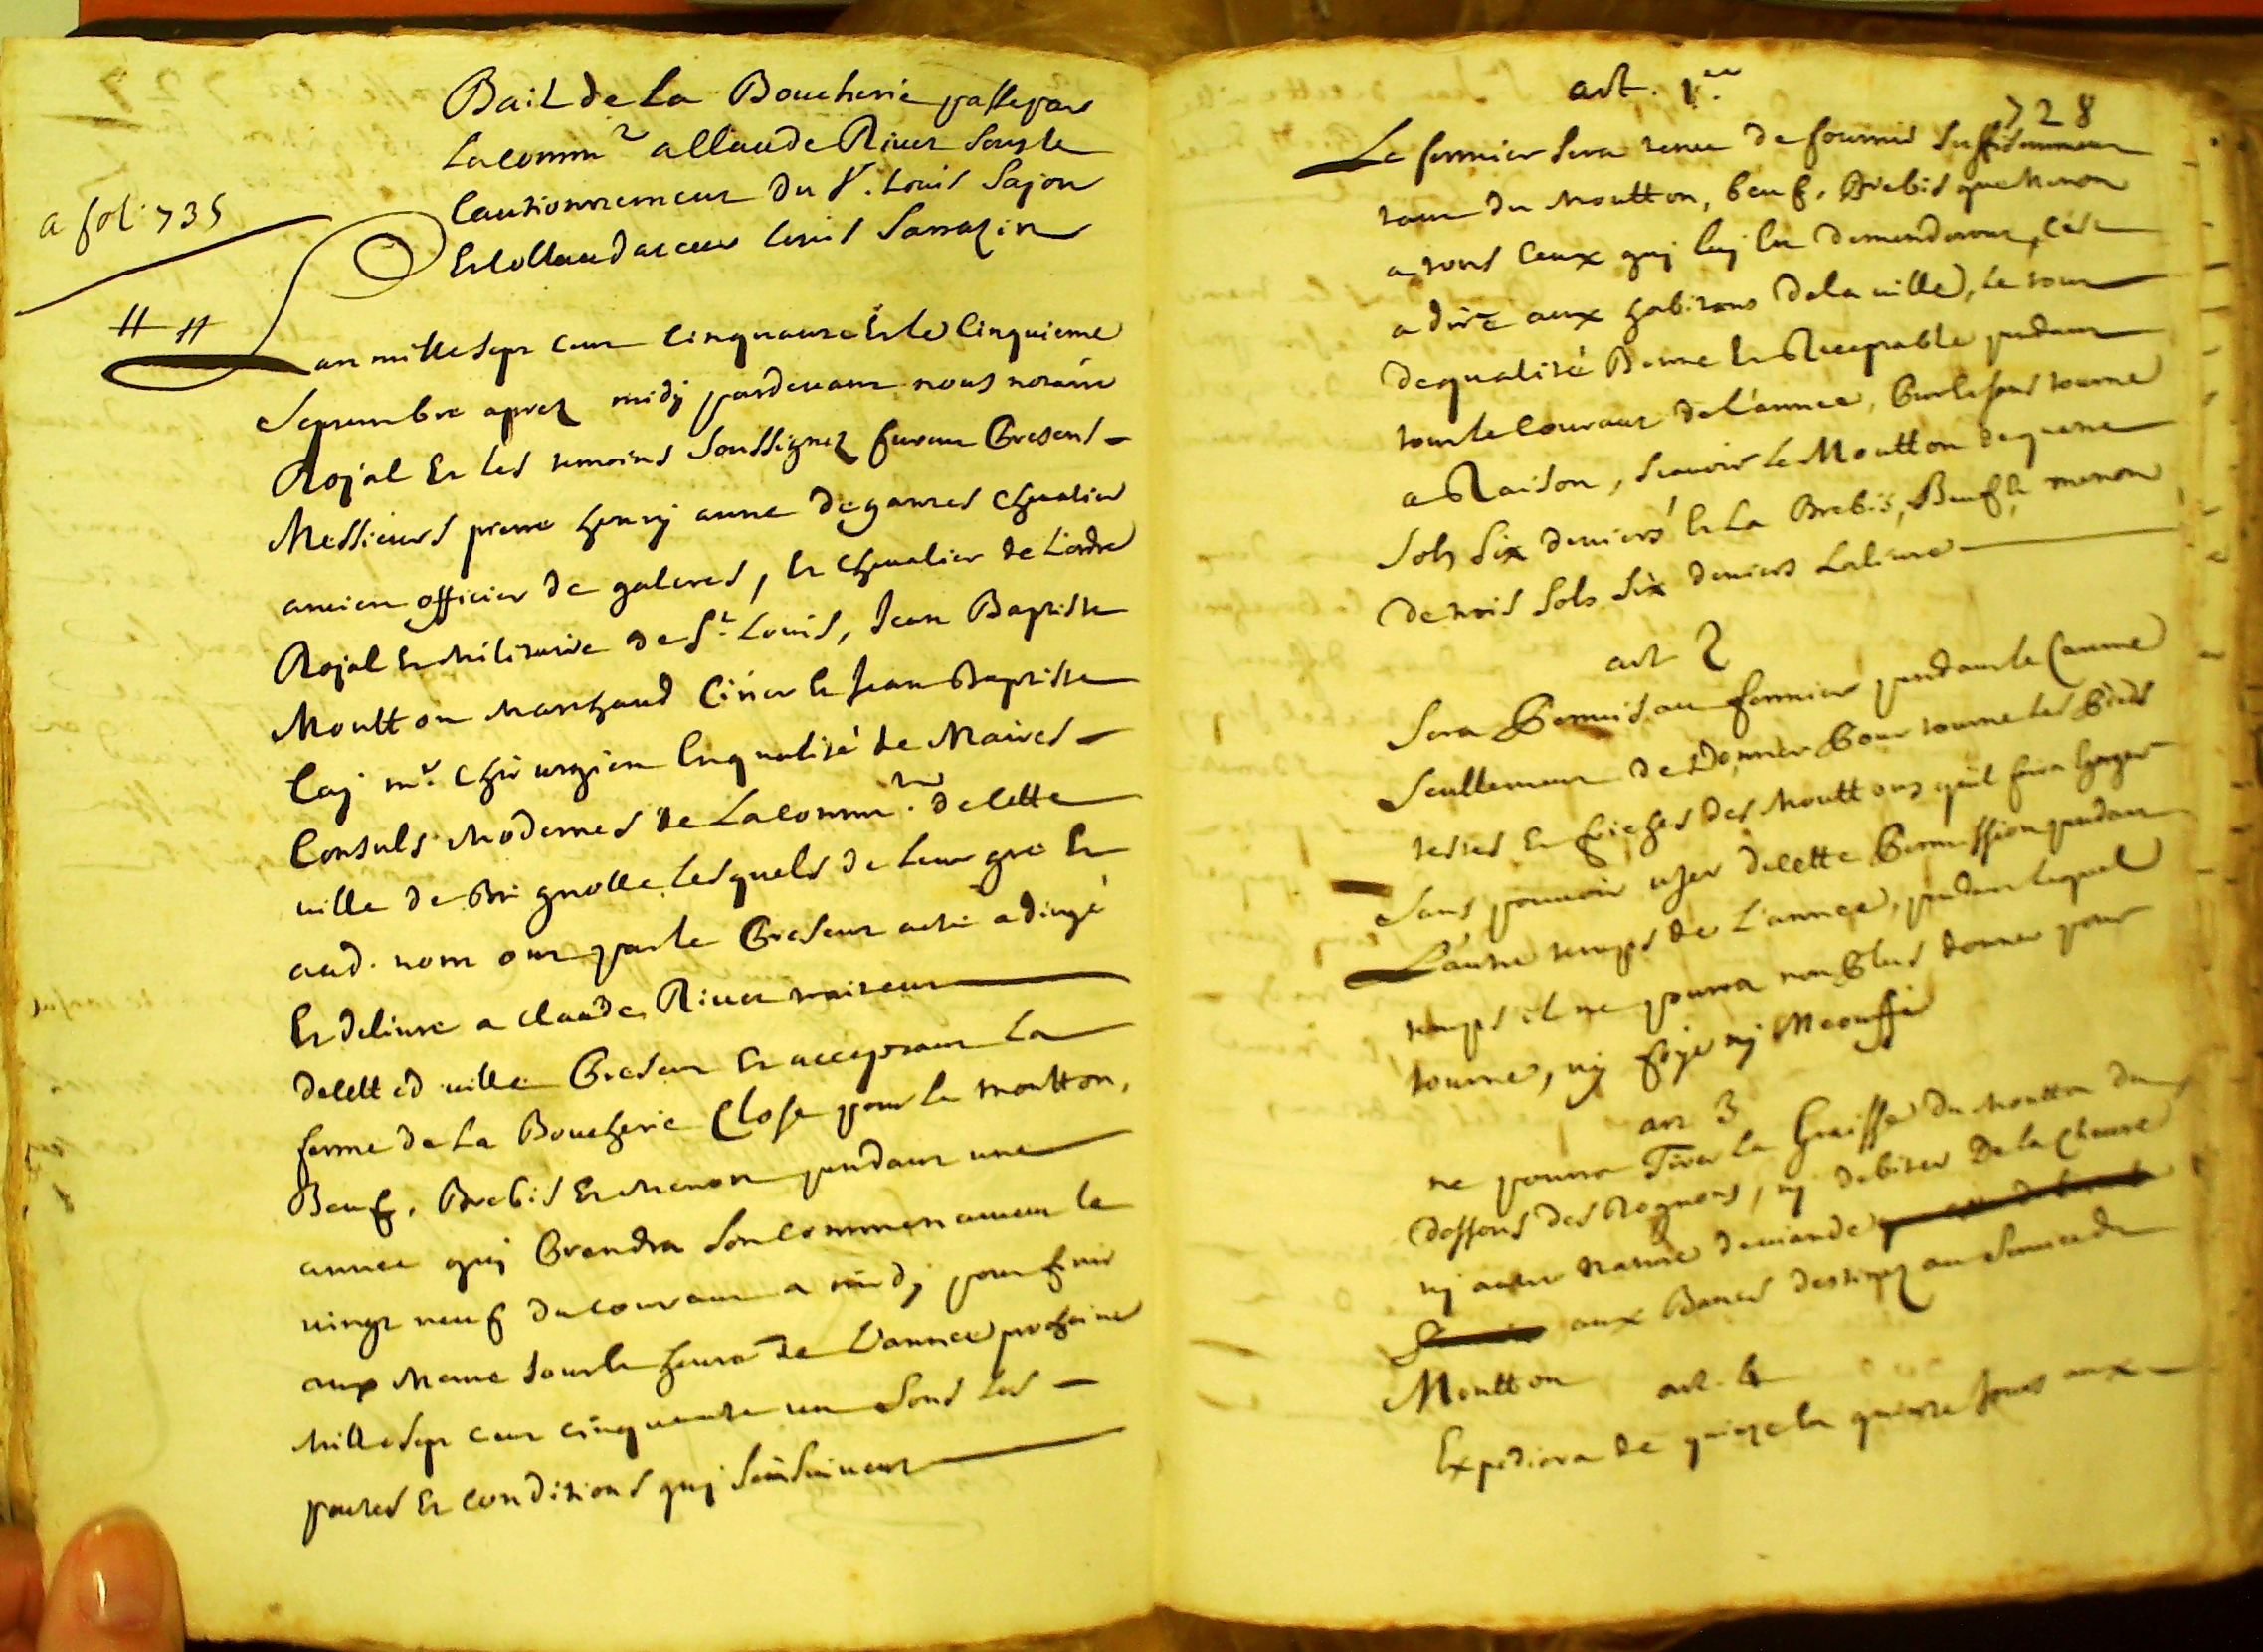 Bail de la Boucherie passé par
la comm.te a Claude River sous le
Cautionnement du Sr. Louis Sajou
Et Collaudateur Louis Sarrazin
a fol: 735
L'an mille sept cent cinquante Et le cinquieme
Septembre aprez midy pardevant nous notaire
Royal Et les temoins soussignez furent Presens
Messieurs pierre henry anne de gantes chevalier
ancien officier de galeres, Et chevalier de L'ordre
Royal Et militaire de St. Louis, Jean Baptiste
Moutton marchand Cirier Et Jean Baptiste
Caj mr. chirurgien En qualité de Maires
Consuls modernes de La comm.té de cette
ville de Brignolle, Lesquels de leur gré Et
aud. nom ont par le Present acte adiugé
Et delivré a claude River traiteur
de cetted ville Present Et acceptant La
ferme de La Boucherie Close pour le moutton,
Beuf, Brebis Et menon pendant une
année quj Prendra son commencement le
vingt neuf du courant a midj pour finir
aux meme jour Et heure de L'année prochaine
mille sept cent cinquante un sous les
pactes Et conditions quj s'ensuivent
728
art. 1er
Le fermier sera tenu de fournir suffisamment
tant du moutton, beuf, Brebis que menon
a tous Ceux quj luj En demanderont, c'est
a dire aux habitans de la ville, le tout
de qualité Bonne Et Receptable pendant
tout le Courant de L'année, Et le sans tourne
a Raison, scavoir le Moutton de quatre
sols six deniers Et La Brebis, Beuf Et menon
de trois sols six deniers La livre
art 2
Sera Permis au fermier pendant le Careme
seullement de Donner Pour tourne les Pieds
testes Et frieges des mouttons qu'il fera Egorger
sans pouvoir uzer de cette Permission pendant
L'autre temps de L'année, pendant lequel
temps il ne pourra non Plus donner pour
tourne, nj foye nj Meouffe
art 3
ne pourra Tirer La Graisse du moutton du
dessous des Rognons, nj debiter De la Chevre
nj autre nature de viande
aux Bancs destinez au service du
Moutton
art. 4
Expediera de quinze En quinze jours aux